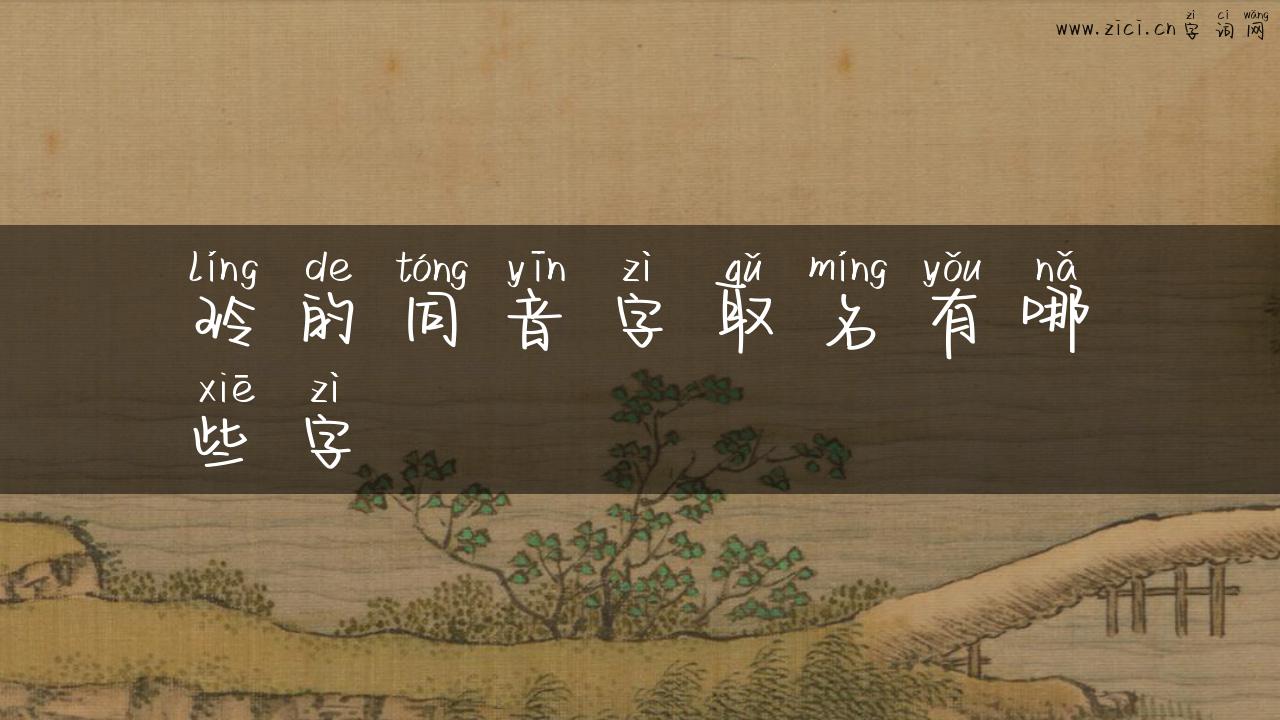 zì cí wǎng
www.zici.cn 字词网
líng de tóng yīn zì qǔ míng yǒu nǎ
玲的同音字取名有哪
xiē zì
些字